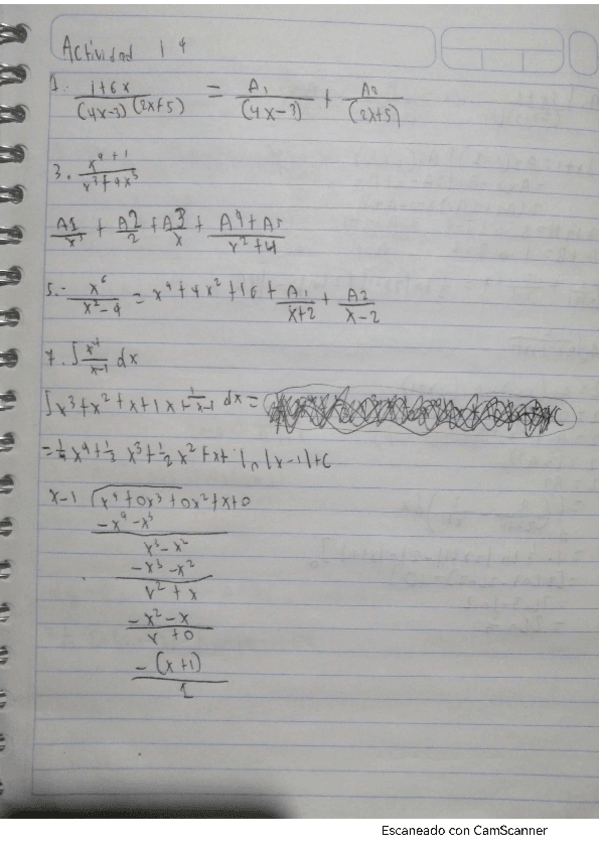 Actividad 14
1. 1+6x/(4x-3)(2x+5) = A1/(4x-3) + A2/(2x+5)
3. x^4+1/x^3+4x^5
A1/x^3 + A2/2 + A3/x + A4+A5/x^2+4
5.- x^6/x^2-4 = x^4+4x^2+16+ A1/x+2 + A2/x-2
7. ∫ x^4/x-1 dx
∫x^3+x^2+x+1x+ 1/x-1 dx =
= 1/4 x^4 + 1/3 x^3 + 1/2 x^2 + x + ln|x-1|+C
x-1 √x^4+0x^3+0x^2+x+0
-x^4-x^3
x^3-x^2
-x^3-x^2
x^2+x
-x^2-x
x+0
-(x+1)
1
Escaneado con CamScanner